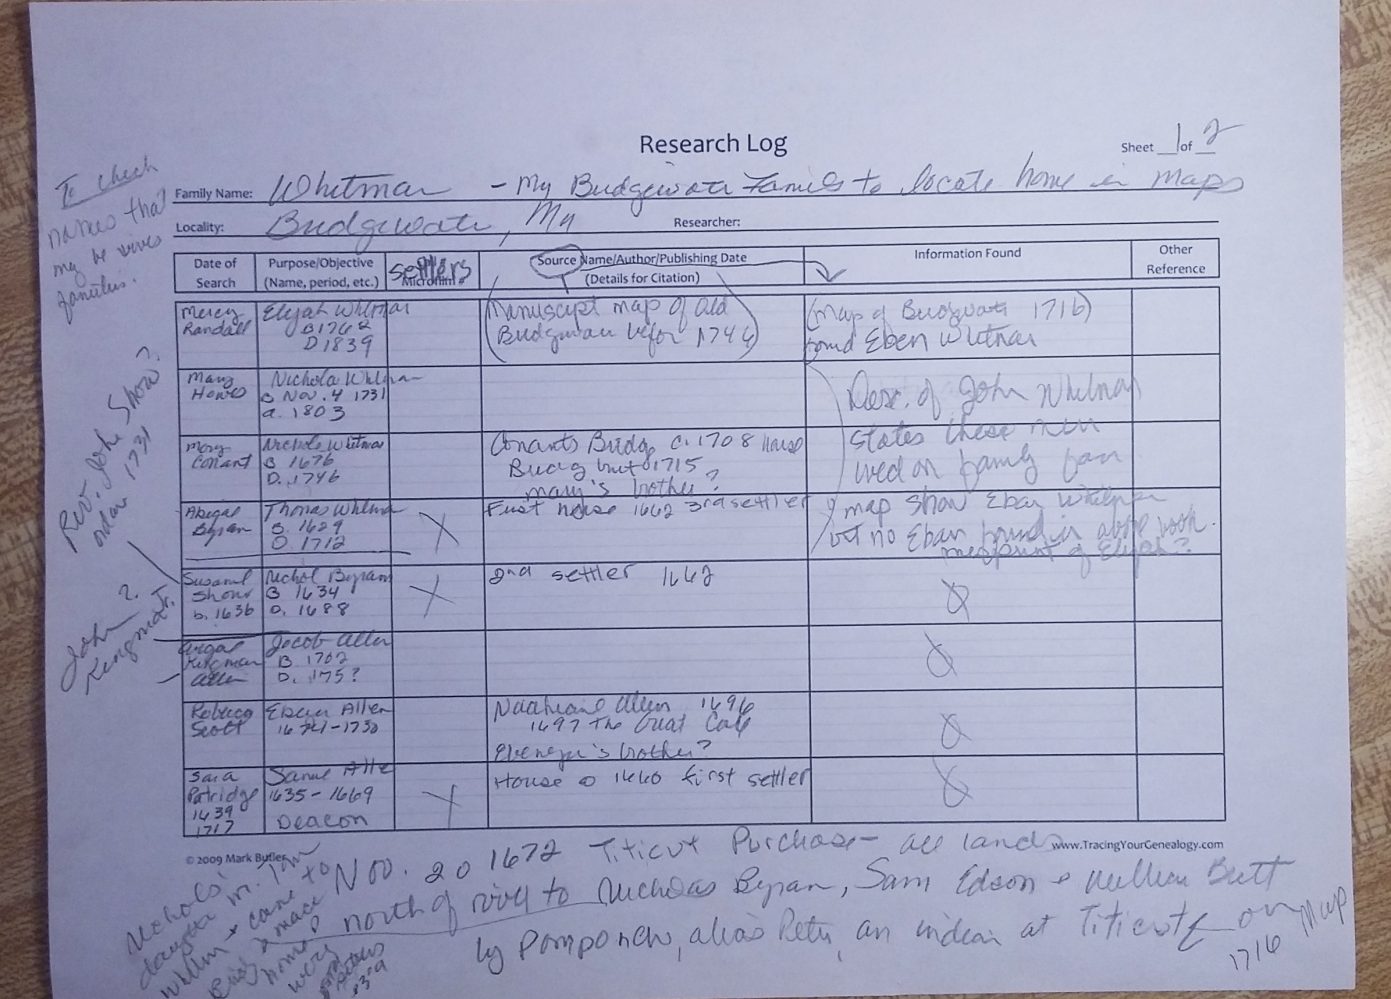 Research Log
Sheet 1 of 2
Family Name: Whitman - My Bridgewater Families to locate home in maps
Locality: Bridgewater, Ma Researcher:
To check
names that
my be
families.
Date of Search
Purpose/Objective (Name, period, etc.)
settlers
Source Name/Author/Publishing Date (Details for Citation)
Information Found
Other Reference
Mercy Randall
Elijah Whitman
B 1762
D 1839
(Manuscript map of old
Bridgewater befor 1746)
(Map of Bridgwater 1716)
found Eben Whitman
Mary Howes
Nichola Whitman
B Nov. 4 1731
d. 1803
Desc. of John Whitman
states these men
lived on family farm
Mary Conant
Nichols Whitman
B 1676
D. 1746
Conants Bridg c. 1708 house
Bridg built 1715
mary's brother?
Abigal Byram
Thomas Whitman
B. 1629
D 1712
X
First house 1662 3rd settler
map show Eben Whitman
but no Eban found in above book.
Rev. John Show?
1731
Susannd Shour
b. 1636
Nichol Byram
B 1634
D. 1688
X
2nd settler 1662
John ?
Kingman Jr.
Kingman
Allen
Jacob Allen
B. 1702
D. 175?
Rebecca Scott
Eben Allen
-1730
Allen 1696
1697 the Great
Ebenezer's brother?
Sara
Patridge
1639
1717
Samuel Alle
1635 - 1669
Deacon
X
House @ 1660 first settler
© 2009 Mark Butler
www.TracingYourGenealogy.com
Nov. 20 1672 Titicut Purchase - all lands
north of river to Nicholas Byran, Sam Edson & William Brett
by Pomponoho, alias Peter, an indian at Titicut
on 1716 Map
Nichols'
daughter m.
came to
home
were
settlers